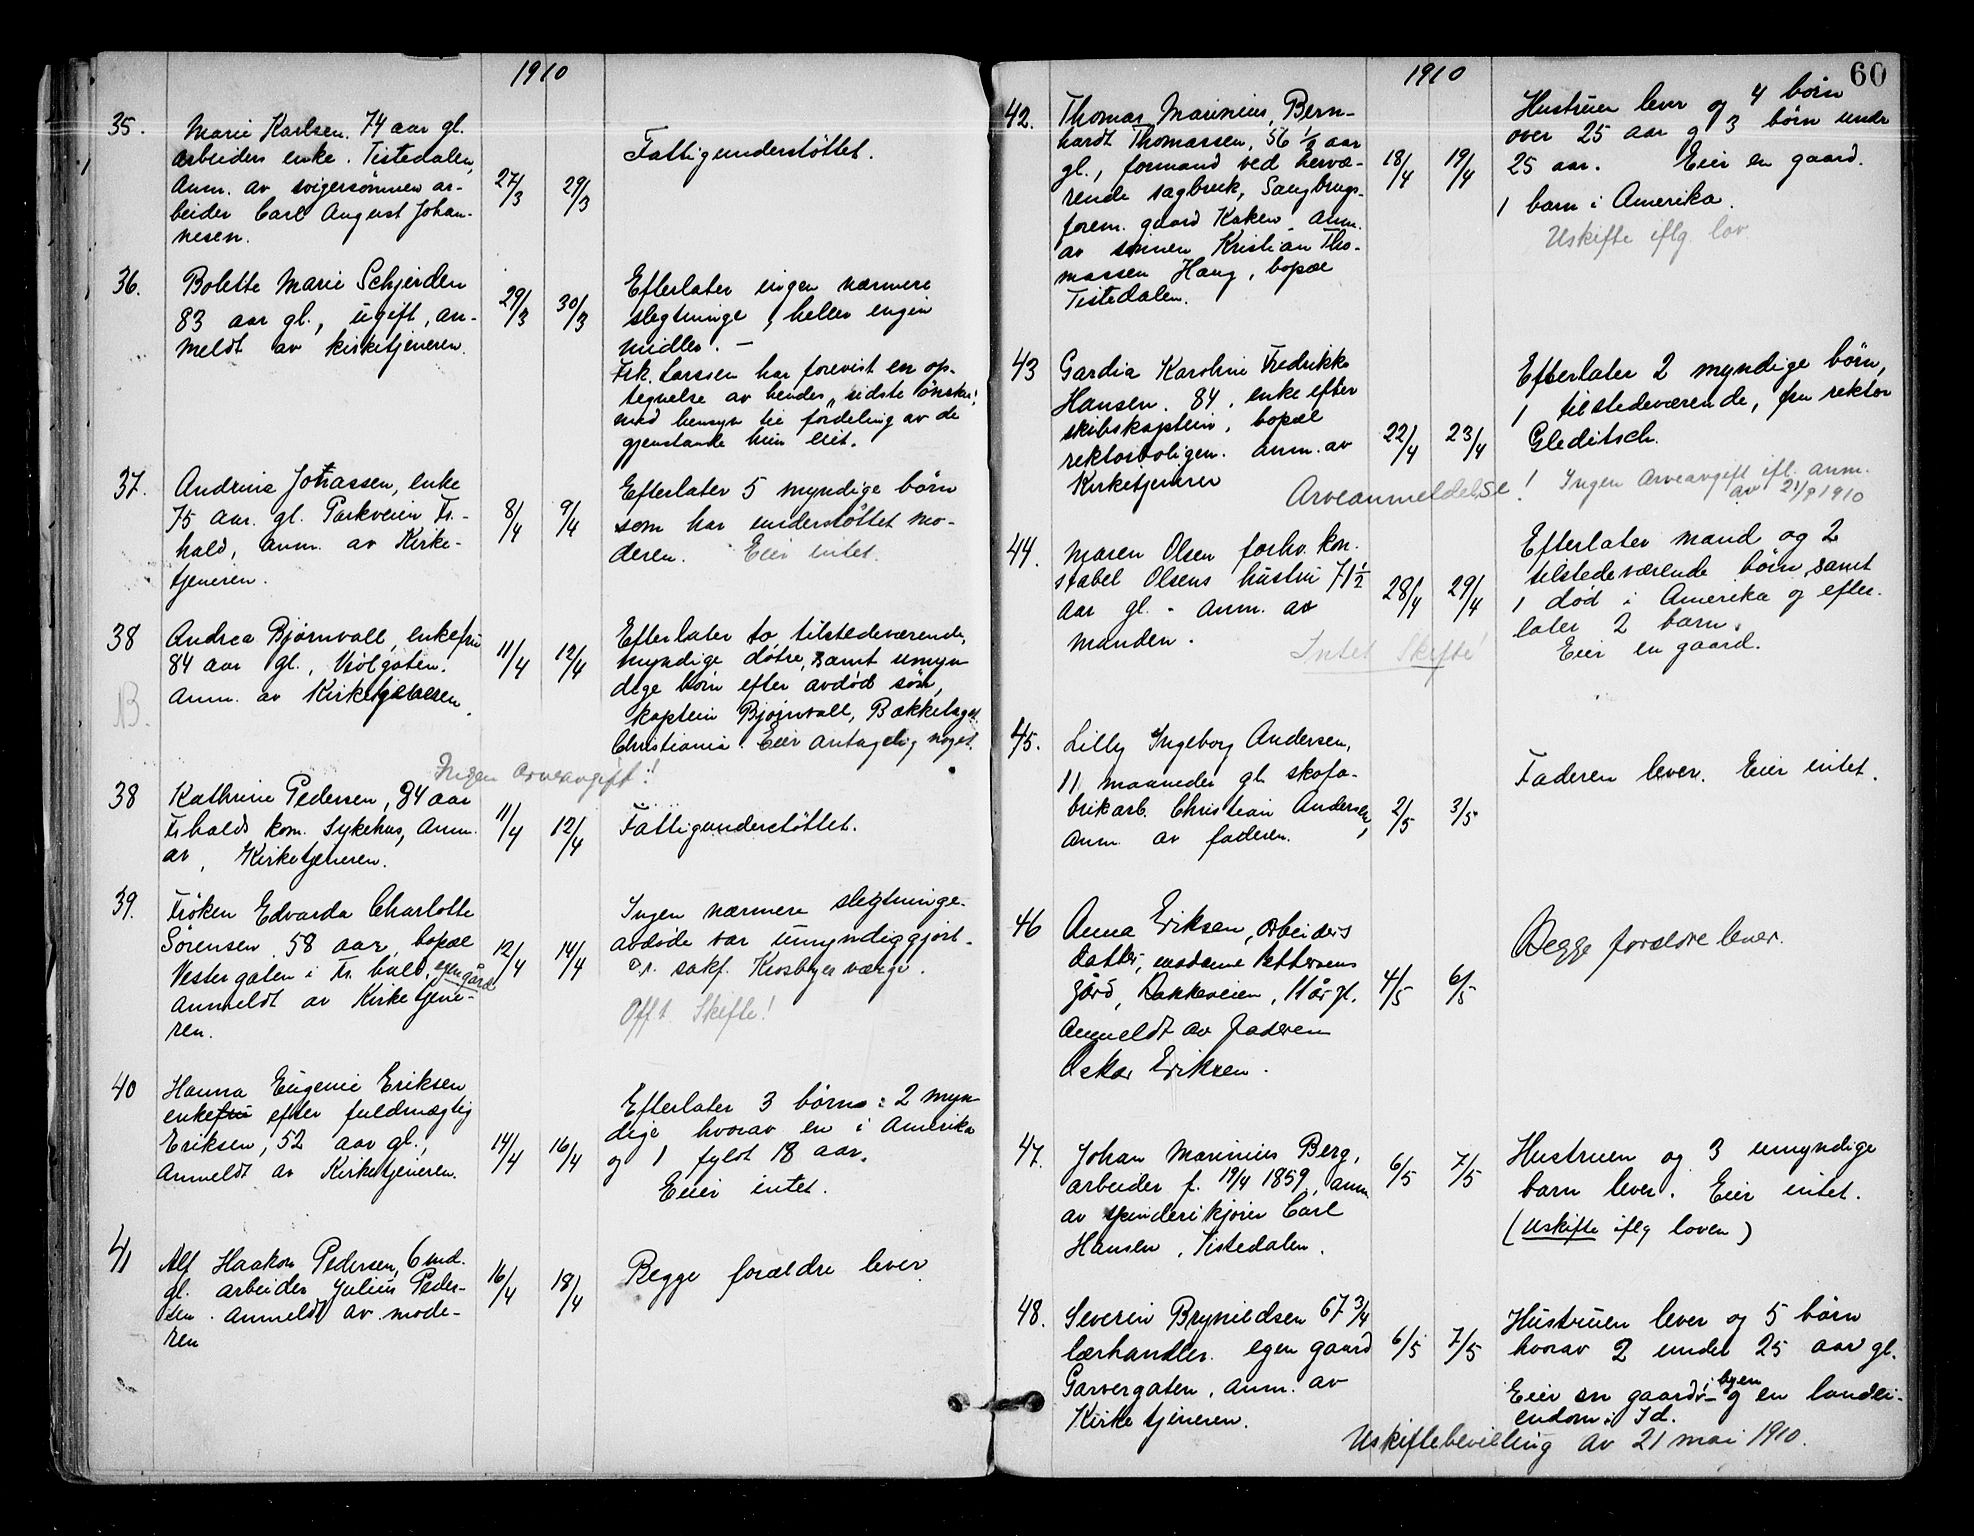 1910
35.
Marie Karlsen. 74 aar gl.
arbeiders enke. Tistedalen,
Anm. av svigersønnen ar-
beider Carl August Johan-
nesen.
27/3
29/3
Fattigunderstöttet.
36.
Bolette Marie Schjerden
83 aar gl., ugift, an-
meldt av kirketjeneren.
29/3
30/3
Efterlater ingen nærmere
slegtninge, heller ingen
midler. —
Frk. Larssen har forevist en op-
tegnelse av hendes „sidste ønsker"
med hensyn til fordeling av de
gjenstande hun eiet.
37.
Andrine Johassen, enke
75 aar. gl. Parkveien Fr.-
hald, anm. av Kirke-
tjeneren.
8/4
9/4
Efterlater 5 myndige børn
som har understöttet mo-
deren. Eier intet.
38
Andrea Bjørnvall, enkefru
84 aar gl., Violgaten.
Anm. av Kirketjeneren.
11/4
12/4
Efterlater to tilstedeværende,
myndige døtre, samt umyn-
dige børn efter avdød søn,
kaptein Bjørnvall, Bækkelaget
Christiania. Eier antagelig noget.
Ingen arveavgift!
38
Kathrine Pedersen, 84 aar
Fr.halds kom. Sykehus, Anm.
av Kirketjeneren.
11/4
12/4
Fattigunderstöttet.
39.
Frøken Edvarda Charlotte
Sørensen 58 aar, bopæl
Vestergaten i Fr. hald, egen gård
Anmeldt av Kirketjene-
ren.
12/4
14/4
Ingen nærmere slegtninge.
avdøde var umyndiggjort.
o.r. sakf. Krosbyes værge.
Off. Skifte!
40
Hanna Eugenie Eriksen
enkefru efter fuldmægtig
Eriksen, 52 aar gl.,
Anmeldt av Kirketjeneren.
14/4
16/4
Efterlater 3 børn: 2 myn-
dige hvorav en i Amerika
og 1 fyldt 18 aar.
Eier intet.
41
Alf Haakon Pedersen, 6 md.
gl. arbeider Julius Peder-
sen. Anmeldt av mode-
ren
16/4
18/4
Begge forældre lever
1910
60
42.
Thomas Marinius Bern-
hardt Thomassen, 56 1/2 aar
gl., formand ved herve-
rende sagbruk, Saugbrugs-
foren. gaard Kaken. anm.
av sønnen Kristian Tho-
massen Haug, bopæl
Tistedalen.
18/4
19/4
Hustruen lever og 4 børn
over 25 aar og 3 børn under
25 aar. Eier en gaard.
1 barn i Amerika.
Uskifte iflg. lov
43
Gardia Karoline Fredrikke
Hansen. 84, enke efter
skibskaptein, bopæl
rektorboligen. anm. av
Kirketjener
22/4
23/4
Efterlater 2 myndige børn,
1 tilstedeværende, fru rektor
Gleditsch.
Arveanmeldelse! Ingen Arveavgift ifl. anm.
av 21/9 1910
44.
Maren Olsen forhv. kon-
stabel Olsens hustru 71 1/2
aar gl. - anm. av
manden.
28/4
29/4
Efterlater mand og 2
tilstedeværende børn, samt
1 død i Amerika og efter-
later 2 barn.
Eier en gaard.
Intet Skifte!
45.
Lilly Ingeborg Andersen,
11 maaneder gl. skofa-
brikarb. Christian Andersen,
anm. av faderen.
2/5
3/5
Faderen lever. Eier intet.
46
Anna Eriksen, arbeiders
datter, madame Pettersens
gård, Bakkeveien, 11 år gl.
Anmeldt av faderen
Oskar Eriksen.
4/5
6/5
Begge forældre lever.
47.
Johan Marinius Berg,
arbeider f. 19/4 1859, anm.
av spinderikjører Carl
Hansen, Tistedalen.
6/5
7/5
Hustruen og 3 umyndige
barn lever. Eier intet.
(Uskifte iflg loven)
48.
Severin Brynildsen 67 3/4
lærhandler. egen gaard
Garvergaten, anm. av
Kirketjeneren.
6/5
7/5
Hustruen lever og 5 børn
hvorav 2 under 25 aar gl.
Eier en gaard i byen og en landei-
endom i Id.
Uskiftebevilling av 21 mai 1910.